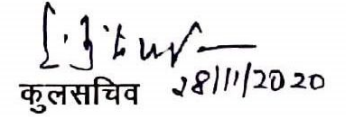 कुलसचिव 28/11/2020